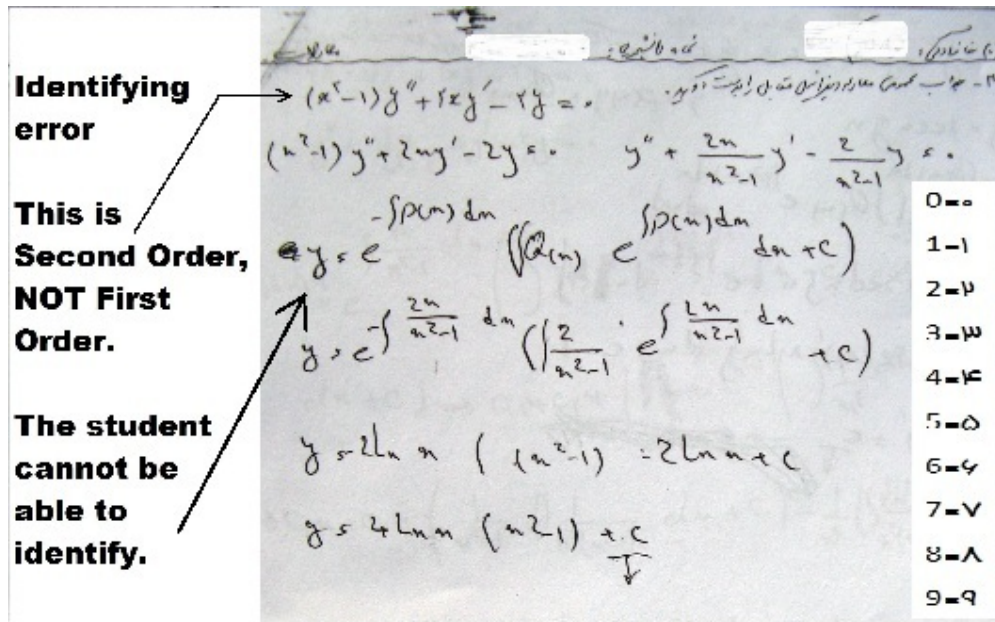 Identifying
error
This is
Second Order,
NOT First
Order.
The student
cannot be
able to
identify.
(x²-1)y″+۲xy′-۲y=۰
(x²-1)y″+2xy′-2y=۰ y″+\frac{2x}{x²-1}y′-\frac{2}{x²-1}y=۰
y=e^{-∫p(x)dx}(∫Q(x) e^{∫p(x)dx} dx+c)
y=e^{-∫\frac{2x}{x²-1}dx}(∫\frac{2}{x²-1} e^{∫\frac{2x}{x²-1}dx}+c)
y=2Ln x ( (x²-1) 2Ln x+c
y=4Ln x (x²-1)+c
0=۰
1-۱
2-۲
3-۳
4-۴
5-۵
6-۶
7-۷
8-۸
9-۹